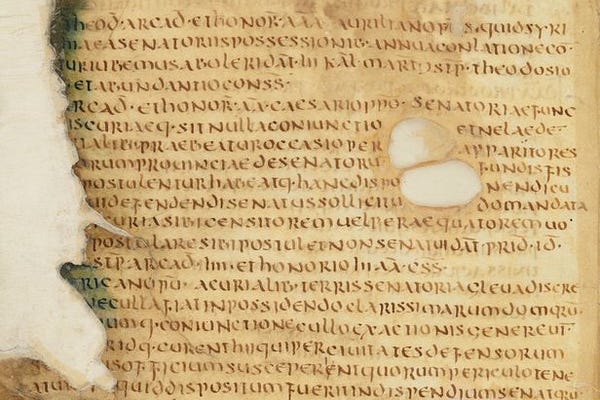 theod·arcad·ethonor·aaa aurilianopp siquidsyri
aeasenatoriispossessionib·annuaconlationeco
uriubemusaboleri dat iii kal mart stp·theodosio
etabundantioconss·
rcad·ethonor·aa·caesarioppo· senatoriaefunc
iscuriaeq·sitnullaconiunctio etnelaede
ialib·praebeaturoccasioper apparitores
arumprouinciaedesenatoriis fundisfis
postulenturhabeatq·hancdispo nendicu
uidefendendisenatussollicitu domandata
curiasibicensitoremuelperaequatoremuo
postularesibipostuletnonsenatui dat prid·id·
stp·arcad·iiii·ethonorio iii aa·css·
ricanopu· acurialib·terrissenatoriagleuadiscre
necullafiatinpossidendoclarissimarumdomorum
umq·coniunctionecullo exactionisgenereuit
ridq·currenthiquiperciuitatesdefensorum
isofficiumsusceperintquorumpericulotene
quiddispositumfueritindispendiumsenatoru